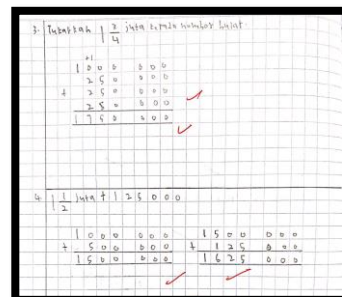 3. Tukarkan 1 3/4 juta kepada nombor bulat.
+1
1 0 0 0 0 0 0
2 5 0 0 0 0
+ 2 5 0 0 0 0
2 5 0 0 0 0
1 7 5 0 0 0 0
4. 1 1/2 juta + 1 2 5 0 0 0
1 0 0 0 0 0 0 1 5 0 0 0 0 0
+ 5 0 0 0 0 0 + 1 2 5 0 0 0
1 5 0 0 0 0 0 1 6 2 5 0 0 0